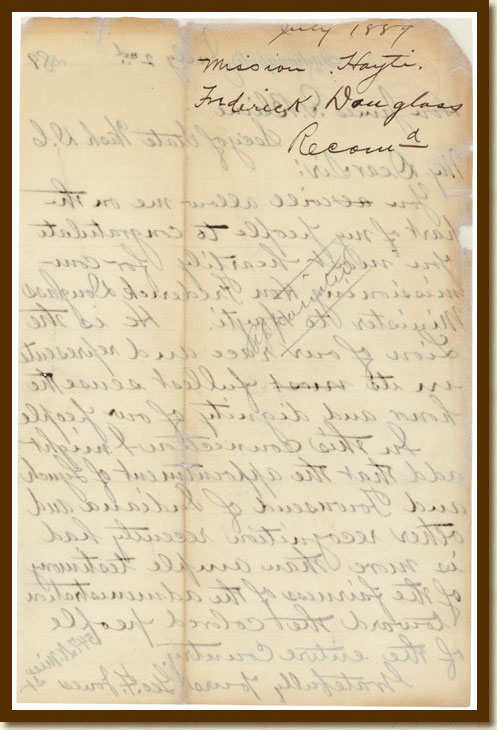 July 1889
Mission Hayti.
Frderick Douglass
Recomd
July 2nd, 188
Hon James G. Blaine
Secy of State Wash D.C
My Dear Sir:
You will allow me on the
part of my people to congratulate
you most heartily for com-
missioning Hon Frederick Douglass
Minister to Hayti. He is the
Lion of our race and represents
in its most fullest sense the
honor and dignity of our people
In this connection I might
add that the appointment of Lynch
and Townsend of Indiana and
other recognition recently had
is more than ample testimony
of the fairness of the administration
toward the colored people
of the entire Country
Gratefully Yours
Geo. F. Jones